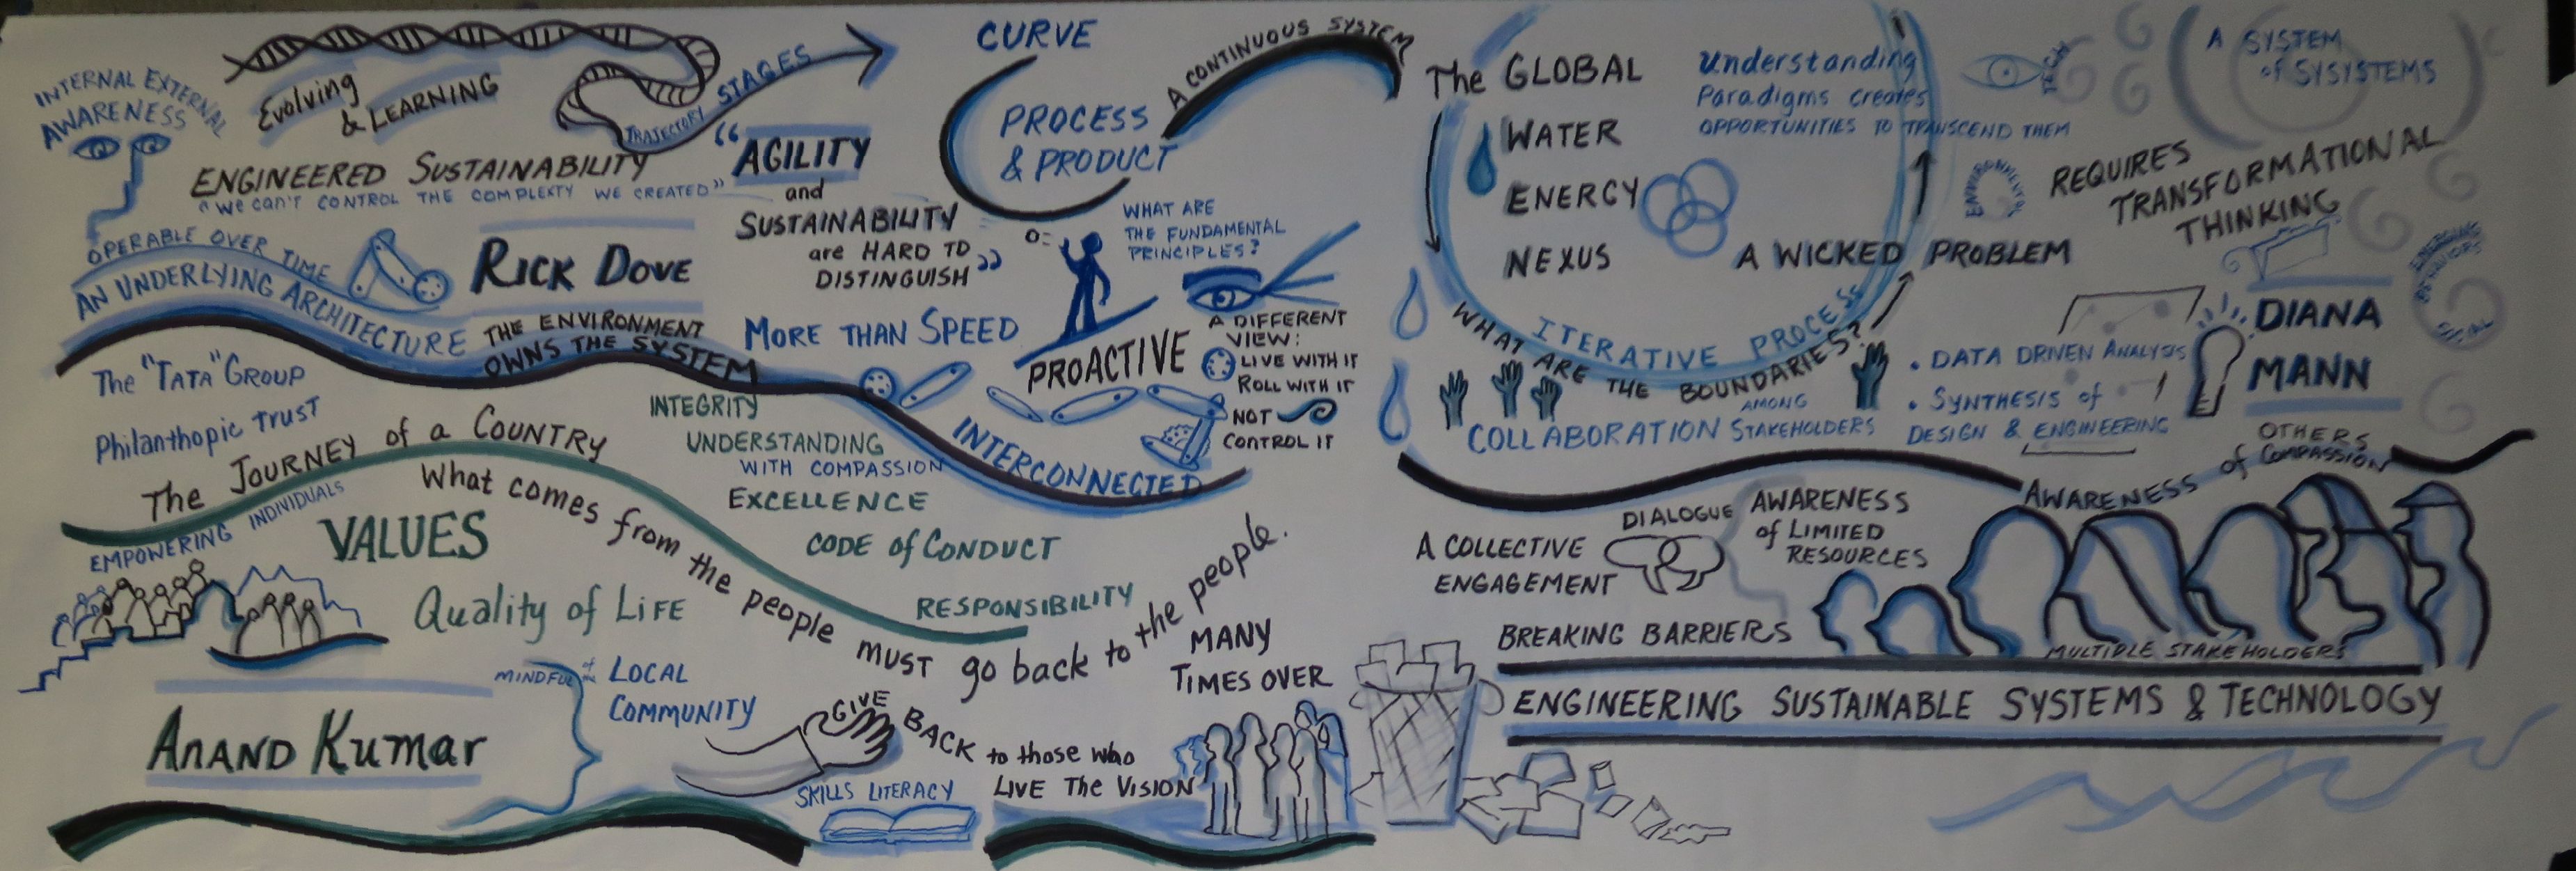 INTERNAL EXTERNAL
AWARENESS
Evolving
& LEARNING
TRAJECTORY STAGES
ENGINEERED SUSTAINABILITY
"WE CAN'T CONTROL THE COMPLEXTY WE CREATED"
OPERABLE OVER TIME
AN UNDERLYING ARCHITECTURE
RICK DOVE
THE ENVIRONMENT
OWNS THE SYSTEM
"AGILITY
and
SUSTAINABILITY
are HARD TO
DISTINGUISH"
MORE THAN SPEED
CURVE
PROCESS
& PRODUCT
A CONTINUOUS SYSTEM
WHAT ARE
THE FUNDAMENTAL
PRINCIPLES?
PROACTIVE
A DIFFERENT
VIEW:
LIVE WITH IT
ROLL WITH IT
NOT
CONTROL IT
INTERCONNECTED
The "TATA" GROUP
Philanthopic TRUST
The JOURNEY of a COUNTRY
EMPOWERING INDIVIDUALS
VALUES
Quality of LIFE
INTEGRITY
UNDERSTANDING
WITH COMPASSION
EXCELLENCE
CODE of CONDUCT
RESPONSIBILITY
What comes from the people must go back to the people.
MANY
TIMES OVER
ANAND Kumar
MINDFUL of the LOCAL
COMMUNITY
GIVE BACK to those who
LIVE The VISION
SKILLS LITERACY
The GLOBAL
WATER
ENERGY
NEXUS
Understanding
Paradigms creates
OPPORTUNITIES TO TRANSCEND THEM
TECH
ENVIRONMENTAL
A SYSTEM
of SYSYSTEMS
REQUIRES
TRANSFORMATIONAL
THINKING
A WICKED PROBLEM
EMERGING
BEHAVIORS
SOCIAL
ITERATIVE PROCESS
WHAT ARE THE BOUNDARIES?
COLLABORATION AMONG
STAKEHOLDERS
• DATA DRIVEN ANALYSIS
• SYNTHESIS of
DESIGN & ENGINEERING
DIANA
MANN
OTHERS
AWARENESS of COMPASSION
A COLLECTIVE
ENGAGEMENT
DIALOGUE
AWARENESS
of LIMITED
RESOURCES
BREAKING BARRIERS
MULTIPLE STAKEHOLDERS
ENGINEERING SUSTAINABLE SYSTEMS & TECHNOLOGY